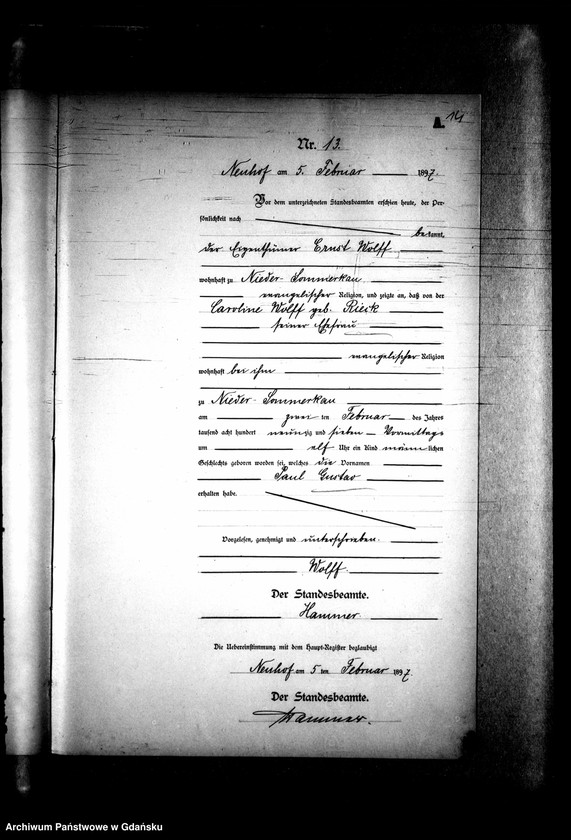 A. 14
Nr. 13.
Neuhof am 5. Februar 1897.
Vor dem unterzeichneten Standesbeamten erschien heute, der Per-
sönlichkeit nach
bekannt,
der Eigenthümer Ernst Wolff
wohnhaft zu Nieder-Sommerkau
evangelischer Religion, und zeigte an, daß von der
Caroline Wolff geb. Rieck
seiner Ehefrau
evangelischer Religion
wohnhaft bei ihm
zu Nieder-Sommerkau
am zwei ten Februar des Jahres
tausend acht hundert neunzig und sieben Vormittags
um elf Uhr ein Kind männlichen
Geschlechts geboren worden sei, welches die Vornamen
Paul Gustav
erhalten habe.
Vorgelesen, genehmigt und unterschrieben.
Wolff
Der Standesbeamte.
Hammer
Die Uebereinstimmung mit dem Haupt-Register beglaubigt
Neuhof am 5 ten Februar 1897.
Der Standesbeamte.
Hammer.
Archiwum Państwowe w Gdańsku